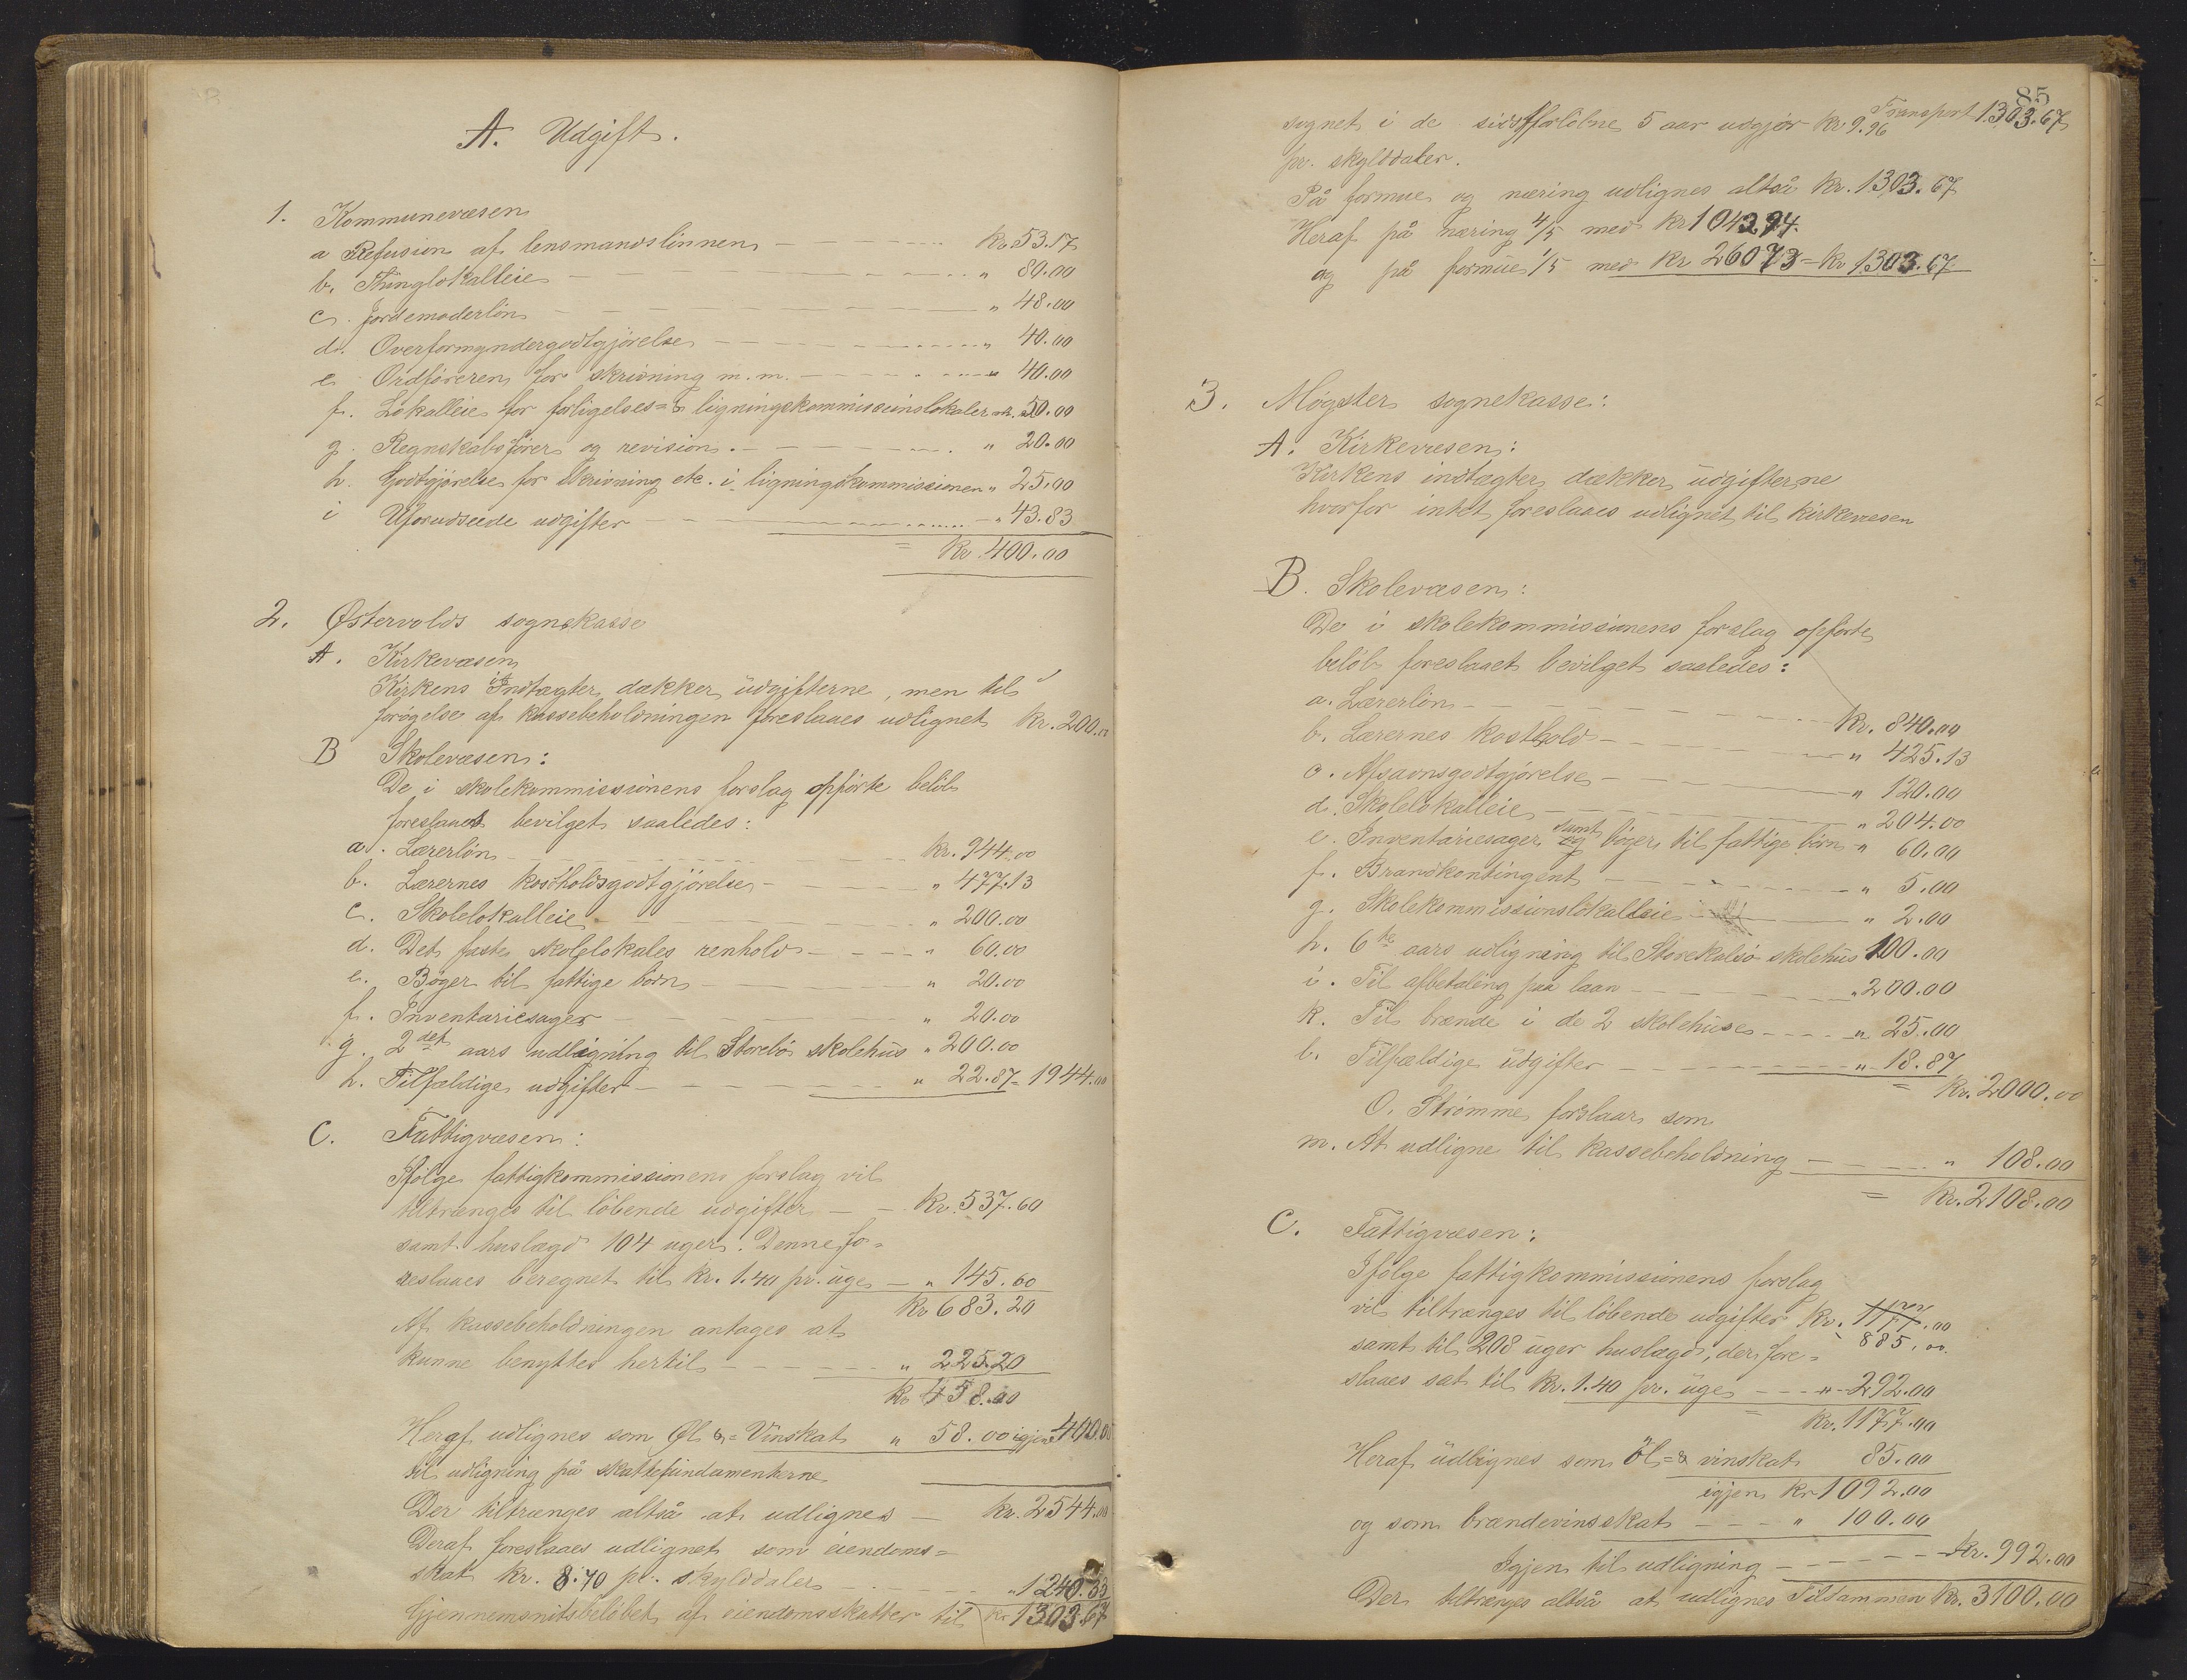 A. Udgift.
1. Kommunevæsen
a Refusion af lensmandslönnen — kr. 53.17
b. Thinglokalleie — " 80.00
c. Jordemoderlön — " 48.00
d. Overformyndergodtgjörelse — " 40.00
e Ordföreren for skrivning m.m. — " 40.00
f. Lokalleie for forligelses= & ligningskommissionslokaler " 50.00
g. Regnskabsförer og revision. — " 20.00
h. Godtgjørelse for skrivning etc. i ligningskommissionen " 25.00
i Uforudseede udgifter — " 43.83
= Kr 400.00
2. Østervolds sognekasse
A. Kirkevæsen
Kirkens Indtægter dækker udgifterne, men til
forögelse af kassebeholdningen foreslaaes udlignet kr. 200.00
B Skolevæsen:
De i skolekommissionens forslag opförte belöb
foreslaaes bevilget saaledes:
a. Lærerlön — kr. 944.00
b. Lærernes kostholdsgodtgjörelse — " 477.13
c. Skolelokalleie — " 200.00
d. Det faste skolelokales renhold — " 60.00
e. Böger til fattige börn — " 20.00
f. Inventariesager — " 20.00
g. 2det aars udligning til Storebö skolehus " 200.00
h. Tilfældige udgifter — " 22.87 = 1944.00
C. Fattigvæsen:
Ifölge fattigkommissionens forslag vil
tiltrænges til löbende udgifter — kr. 537.60
samt huslægd 104 uger. Denne fo=
reslaaes beregnet til kr. 1.40 pr. uge — " 145.60
kr 683.20
Af kassebeholdningen antages at
kunne benyttes hertil — " 225.20
kr 458.00
Heraf udlignes som Øl &= Vinskat " 58.00 igjen 400.00
til udligning på skattefundamenterne
Der tiltrænges altså at udlignes — kr. 2544.00
Deraf foreslaaes udlignet som eiendoms=
skat kr. 8.70 pr. skylddaler — " 1240.33
Gjennemsnitsbelöbet af eiendomsskatter til kr 1303.67
85
Transport 1303.67
sognet i de sidstforlöbne 5 aar udgjör kr 9.96
pr. skylddaler.
På formue og næring udlignes altså kr. 1303.67
Heraf på næring 4/5 med kr 1042.94.
og på formue 1/5 med kr 260.73 = kr 1303.67
3. Møgster sognekasse:
A. Kirkevæsen:
Kirkens indtægter dækker udgifterne
hvorfor intet foreslaaes udlignet til kirkevæsen
B. Skolevæsen:
De i skolekommissionens forslag opförte
belöb foreslaaet bevilget saaledes:
a. Lærerlön — kr. 840.00
b. Lærernes kosthold — " 425.13
c. Afsavnsgodtgjörelse — " 120.00
d. Skolelokalleie — " 204.00
e. Inventariesager samt böger til fattige börn " 60.00
f. Brandkontingent — " 5.00
g. Skolekommissionslokalleie — " 2.00
h. 6te aars udligning til Storekalsö skolehus 100.00
i. Til afbetaling paa laan — " 200.00
k. Til brænde i de 2 skolehuse — " 25.00
l. Tilfældige udgifter — " 18.87
= kr. 2000.00
O. Strömme forslaar som
m. At udligne til kassebeholdning — " 108.00
= kr. 2108.00
C. Fattigvæsen:
Ifölge fattigkommissionens forslag
vil tiltrænges til löbende udgifter kr. 1177.00
885.00.
samt til 208 uger huslægd, der fore=
slaaes sat til kr. 1.40 pr. uge — " 292.00
= kr. 1177.00
Heraf udlignes som öl= & vinskat 85.00
igjen kr 1092.00
og som brændevinsskat — " 100.00
Igjen til udligning — kr. 992.00
Der tiltrænges altså at udlignes Tilsammen kr. 3100.00